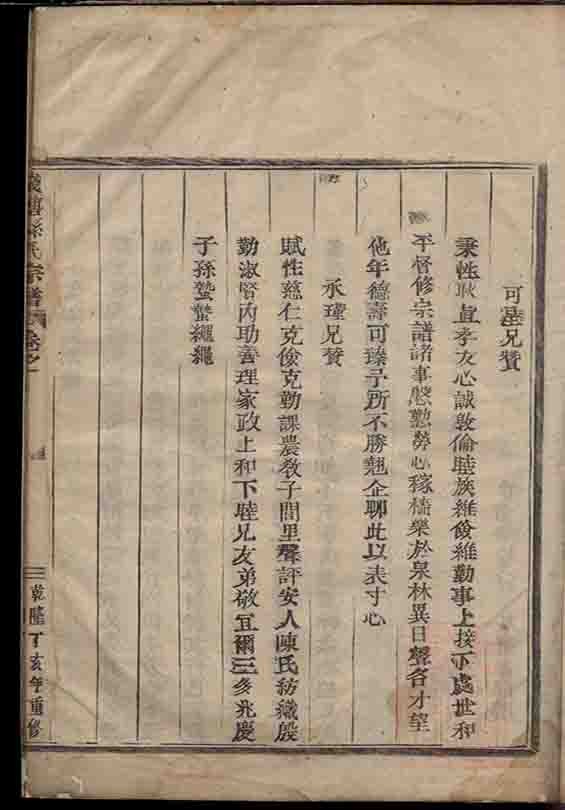 可兄贊
秉性耿直孝友心誠敦倫睦族維儉維勤事上接下處世和
平督修宗譜諸事慇懃勞心稼穡樂於泉林異日聲名才望
他年德壽可臻予所不勝翹企聊此以表寸心
承瑾兄贊
賦性慈仁克儉克勤課農敎子閭里聲評安人陳氏紡織殷
勤淑賢內助善理家政上和下睦兄友弟敬宜爾三多兆慶
子孫蟄蟄繩繩
孫氏宗譜卷之一
乾隆丁亥年重修